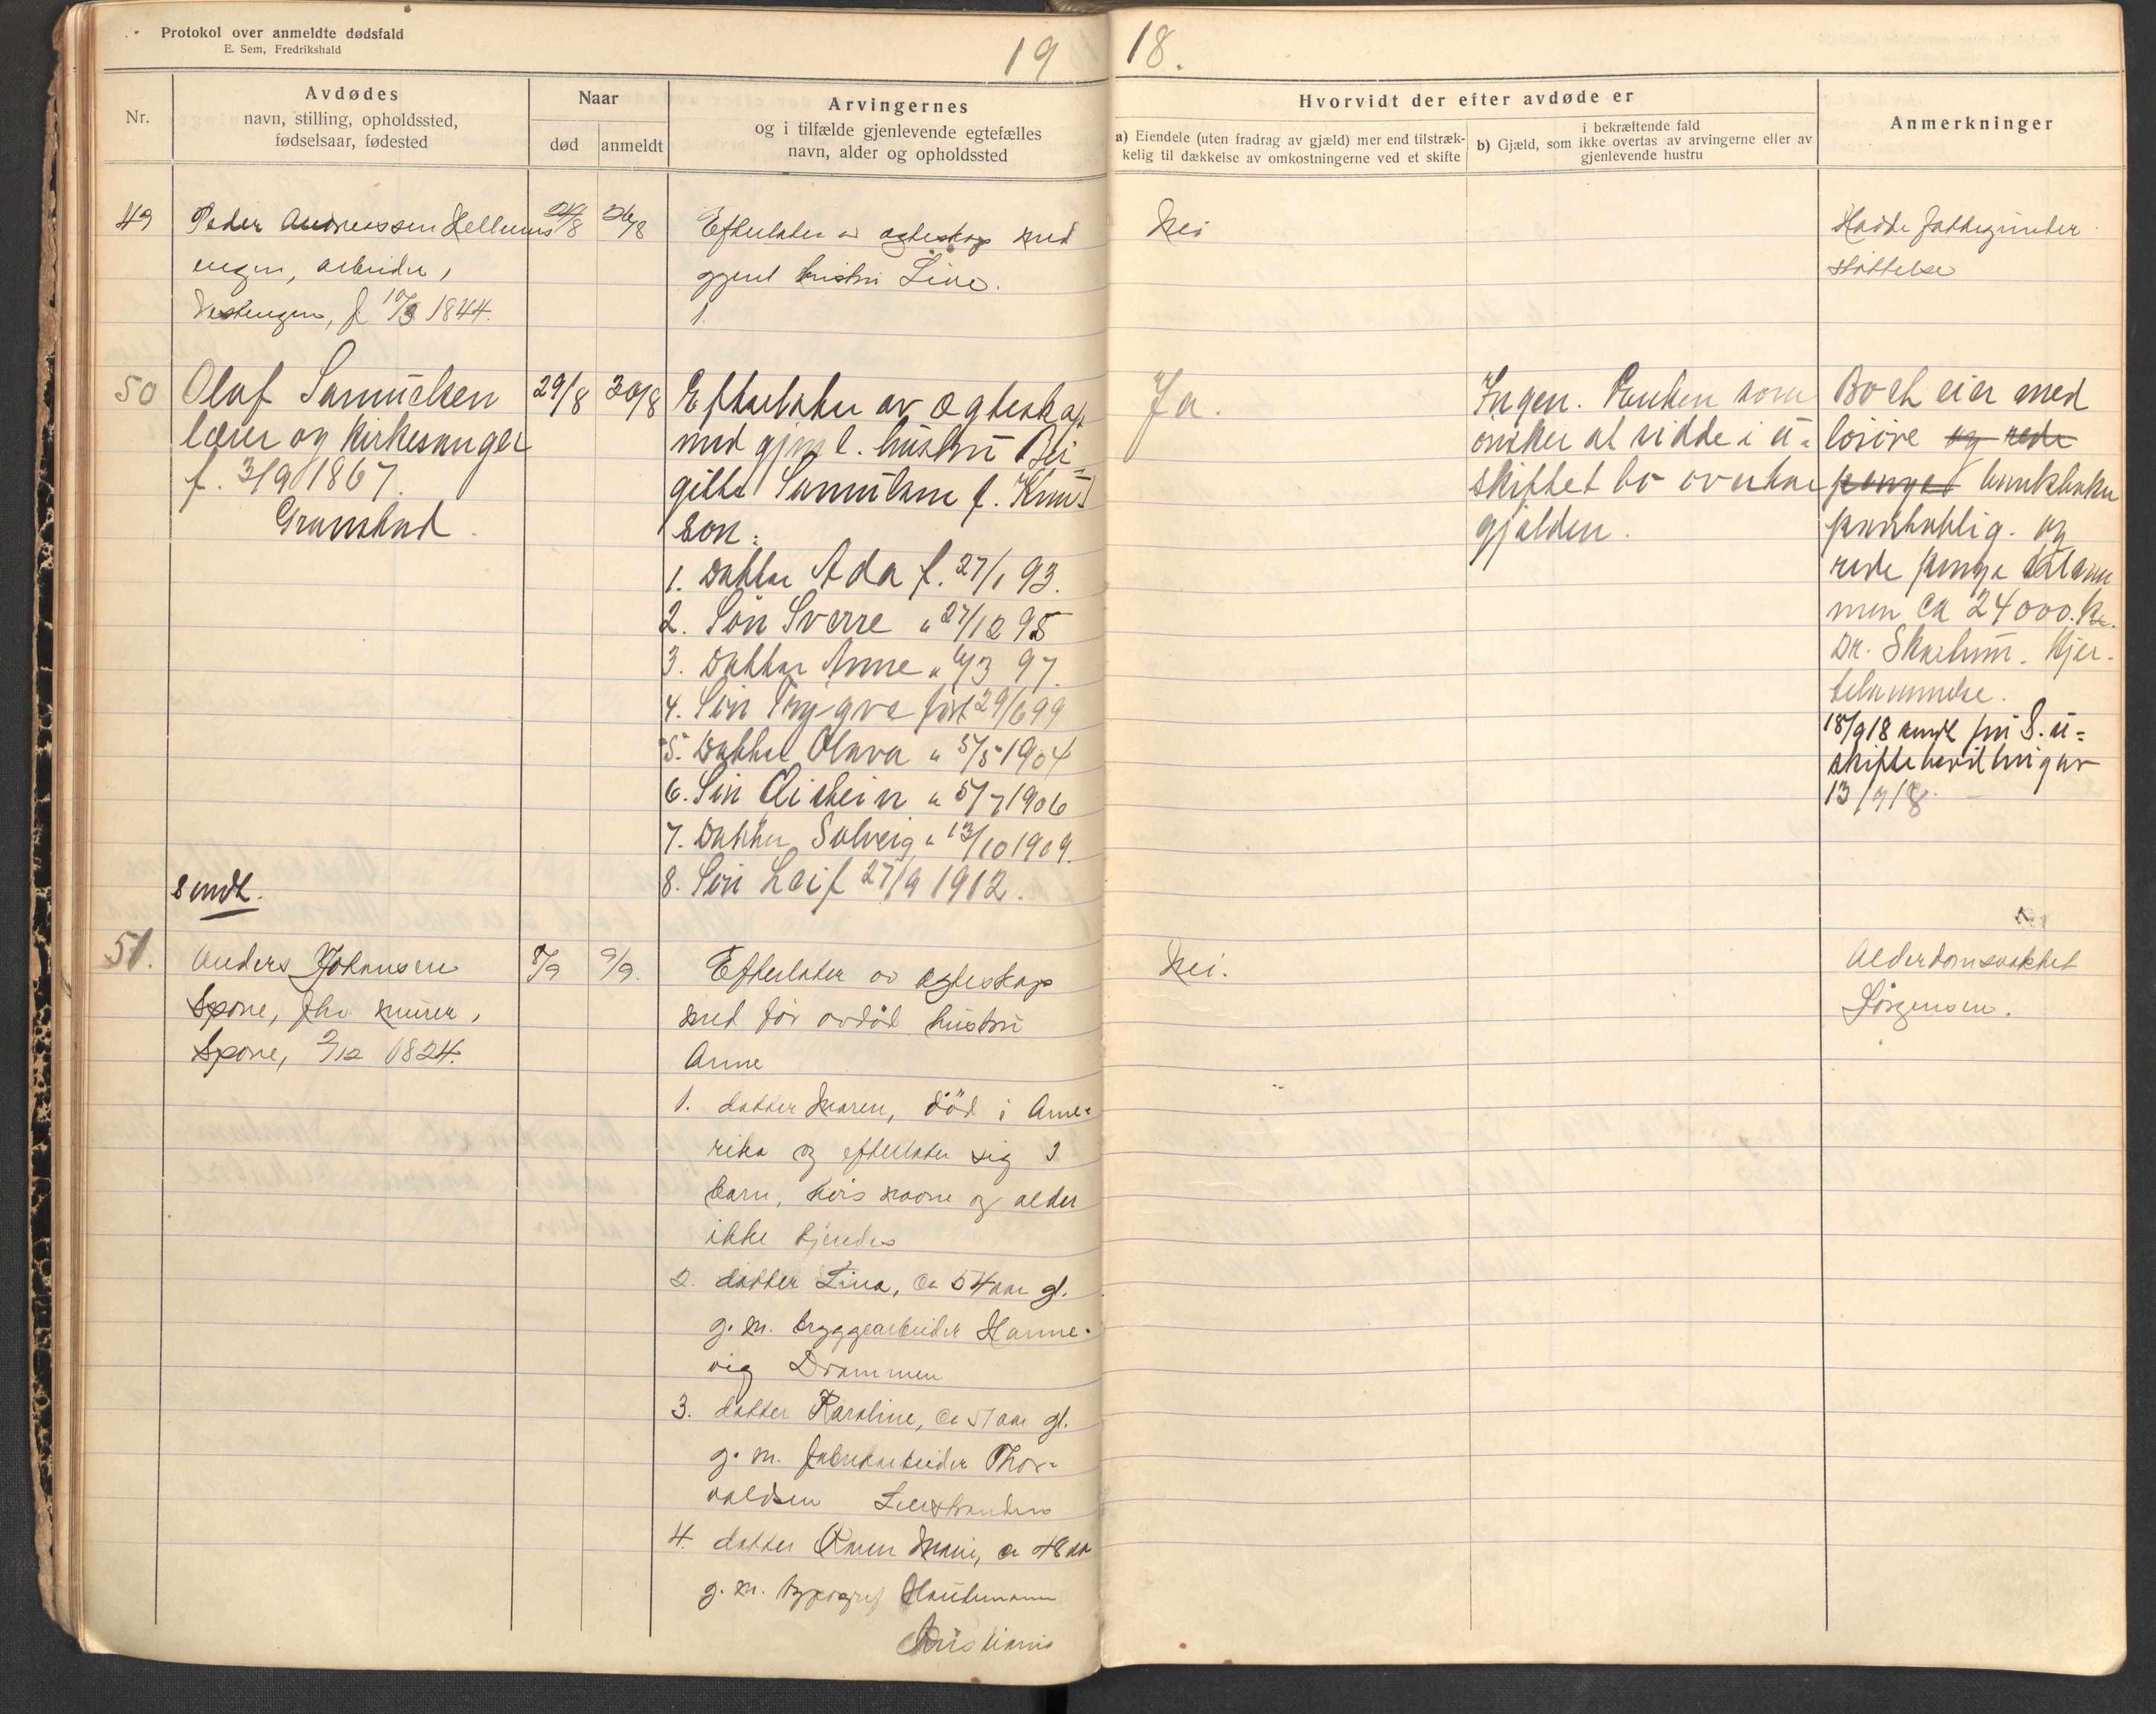 Protokol over anmeldte dødsfald
E. Sem, Fredrikshald
19
18.
Nr.
Avdødes
navn, stilling, opholdssted,
fødselsaar, fødested
Naar
død
anmeldt
Arvingernes
og i tilfælde gjenlevende egtefælles
navn, alder og opholdssted
Hvorvidt der efter avdøde er
a) Eiendele (uten fradrag av gjæld) mer end tilstræk-
kelig til dækkelse av omkostningerne ved et skifte
i bekræftende fald
b) Gjæld, som ikke overtas av arvingerne eller av
gjenlevende hustru
Anmerkninger
49
Peder Andreassen Hellums
engen, arbeider,
Vestengen, f 10/3 1844.
24/8
26/8
Efterlater av ægteskap med
gjenl hustru Live.
1.
Nei
Hadde fattigunder
støttelse
50
Olaf Samuelsen
lærer og kirkesanger
f. 3/9 1867.
Gramstad.
sendt.
29/8
30/8
Efterlater av ægteskap
med gjenl. hustru Bir
gitte Samuelsen f. Knud
son:
1. Datter Ada f. 27/1 93.
2. Søn Sverre " 27/12 95
3. Datter Anne " 4/3 97.
4. Søn Trygve født 29/6 99
5. Datter Olava " 5/5 1904
6. Søn Øistein " 5/7 1906
7. Datter Solveig " 13/10 1909.
8. Søn Leif 27/9 1912.
Ja.
Ingen. Enken som
ønsker at sidde i u-
skiftet bo overtar
gjælden.
Boet eier med
løsøre og rede
penger bankboken
panteoblig. og
rede penge tilsam
men ca 24000. kr.
Dr. Skarlum. Hjer-
telammelse.
18/9 18 sendt fru S. u=
skiftebevillingav
13/9 18.
51.
Anders Johansen
Spone, fhv. murer,
Spone, 2/12 1824.
8/9
9/9.
Efterlater av ægteskap
med før avdød hustru
Anne
1. datter Maren, død i Ame=
rika og efterlater sig 3
barn, hvis navne og alder
ikke kjendes
2. datter Lina, ca 54 aar gl.
g. m. bryggearbeider Hanne-
vig Drammen
3. datter Karoline, ca 51 aar gl.
g. m. fabrikarbeider Thor-
valdsen Lierstranden
4. datter Karen Marie, ca 48 aar
g. m. typograf
Kristiania
Nei.
Alderdomssvakhet
Jørgensen.